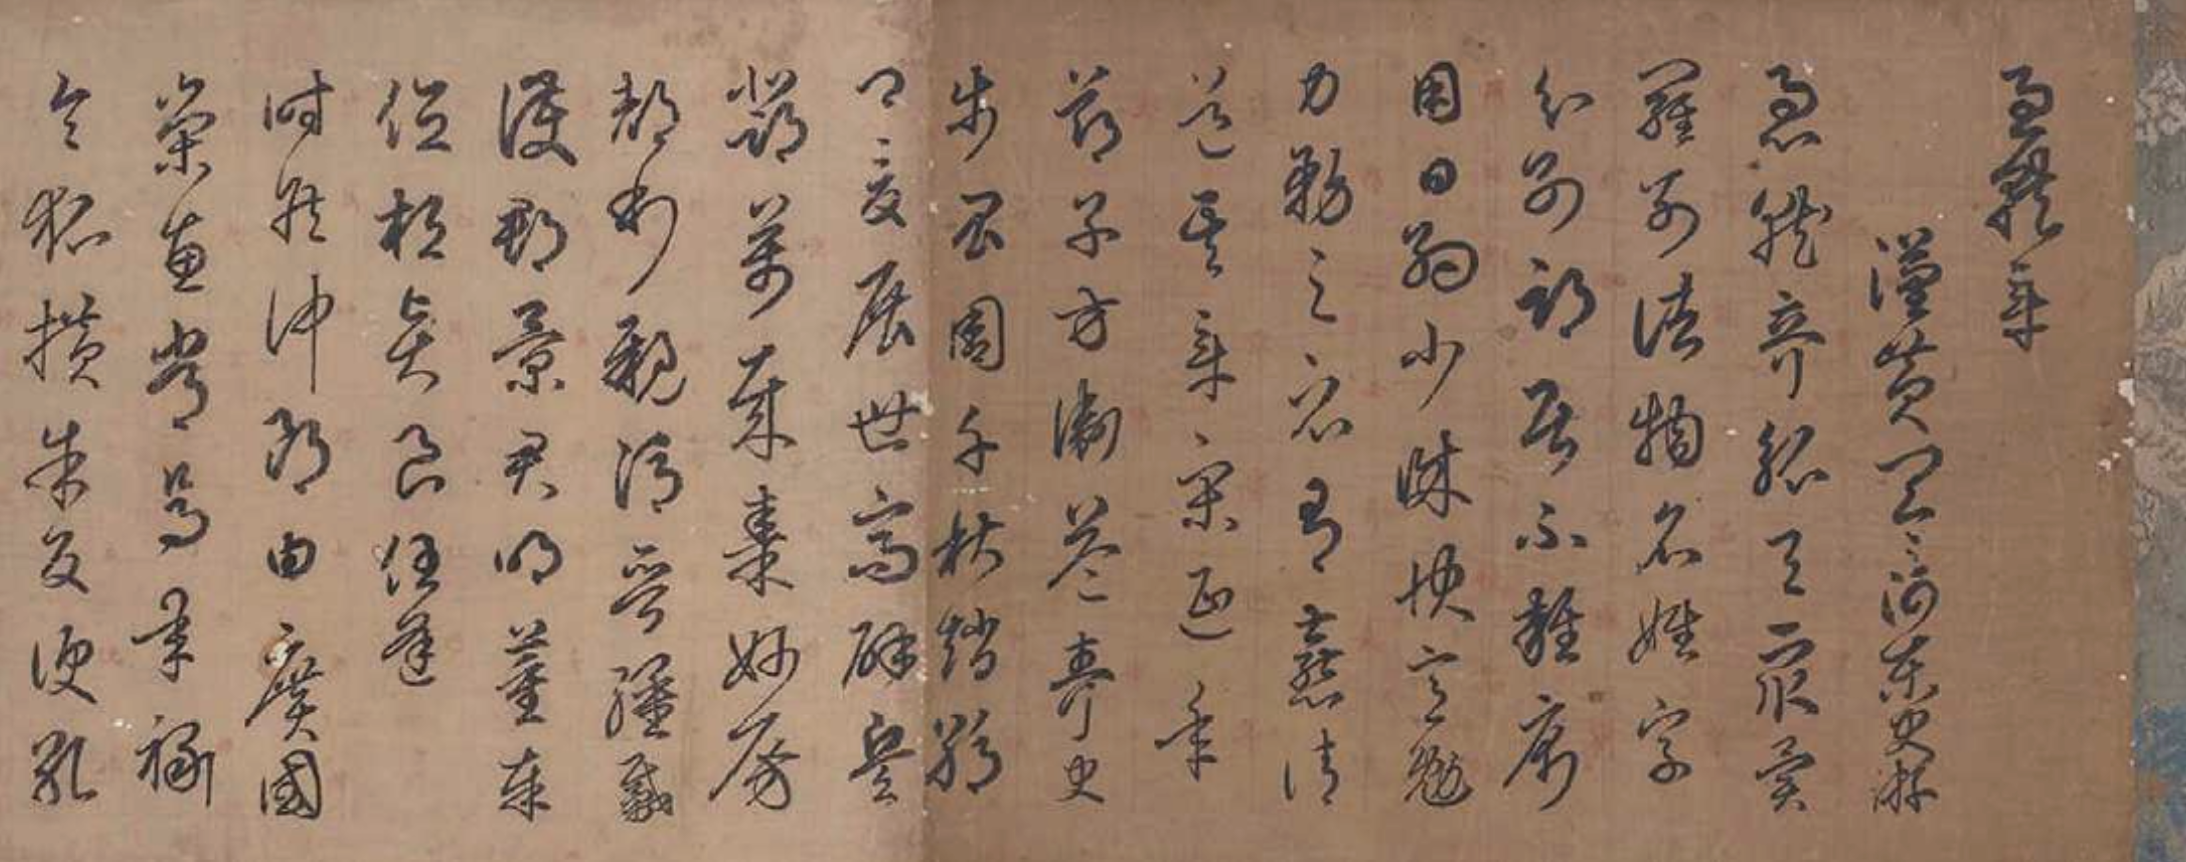 急就章
漢黃門令河東史游
急就奇觚與眾異
羅列諸物名姓字
分別部居不雜廁
用日約少誠快意勉
力務之必有憙請
道其章宋延年
鄭子方衛益壽史
步昌周千秋趙孺
卿爰展世高辟兵
鄧萬歲秦妙房
郝利親馮彊戴
護郡景君明董奉
德桓賢良任逢
時侯仲郎由廣國
榮惠常烏承祿
令狐橫朱交便孔